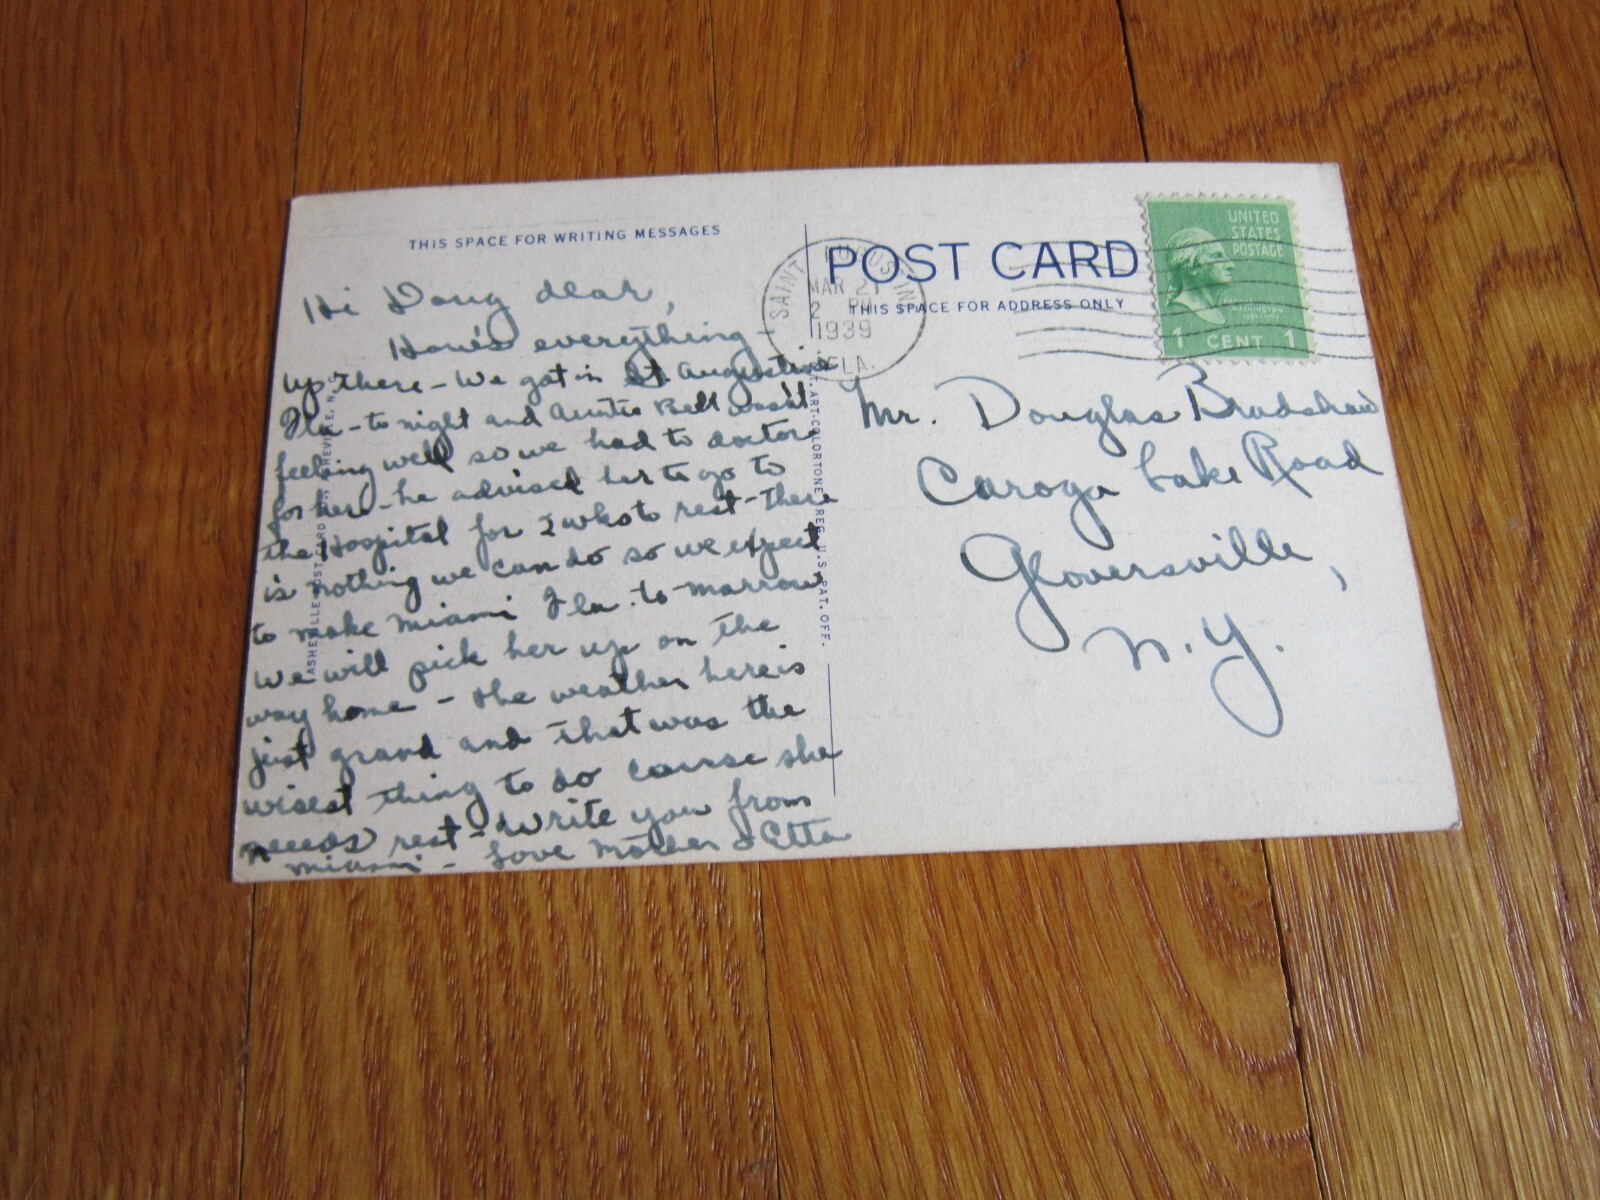 THIS SPACE FOR WRITING MESSAGES
Hi Doug dear,
How's everything -
up there - We got in St. Augustine
Fla - to night and Auntie Bell wasn't
feeling well so we had to doctor
for her - he advised her to go to
the Hospital for 2 wks to rest - There
is nothing we can do so we expect
to make Miami Fla. to-marrow
We will pick her up on the
way home - The weather here is
just grand and that was the
wisest thing to do course she
needs rest - Write you from
Miami - Love Mother & Etta
ASHEVILLE POST CARD ASHEVILLE, N.
ART-COLORTONE REG. U.S. PAT. OFF.
POST CARD
THIS SPACE FOR ADDRESS ONLY
SAINT AUGUSTINE
MAR 21
2 PM
1939
FLA.
UNITED
STATES
POSTAGE
WASHINGTON
1 CENT 1
Mr. Douglas Bradshaw
Caroga Lake Road
Gloversville,
N.Y.